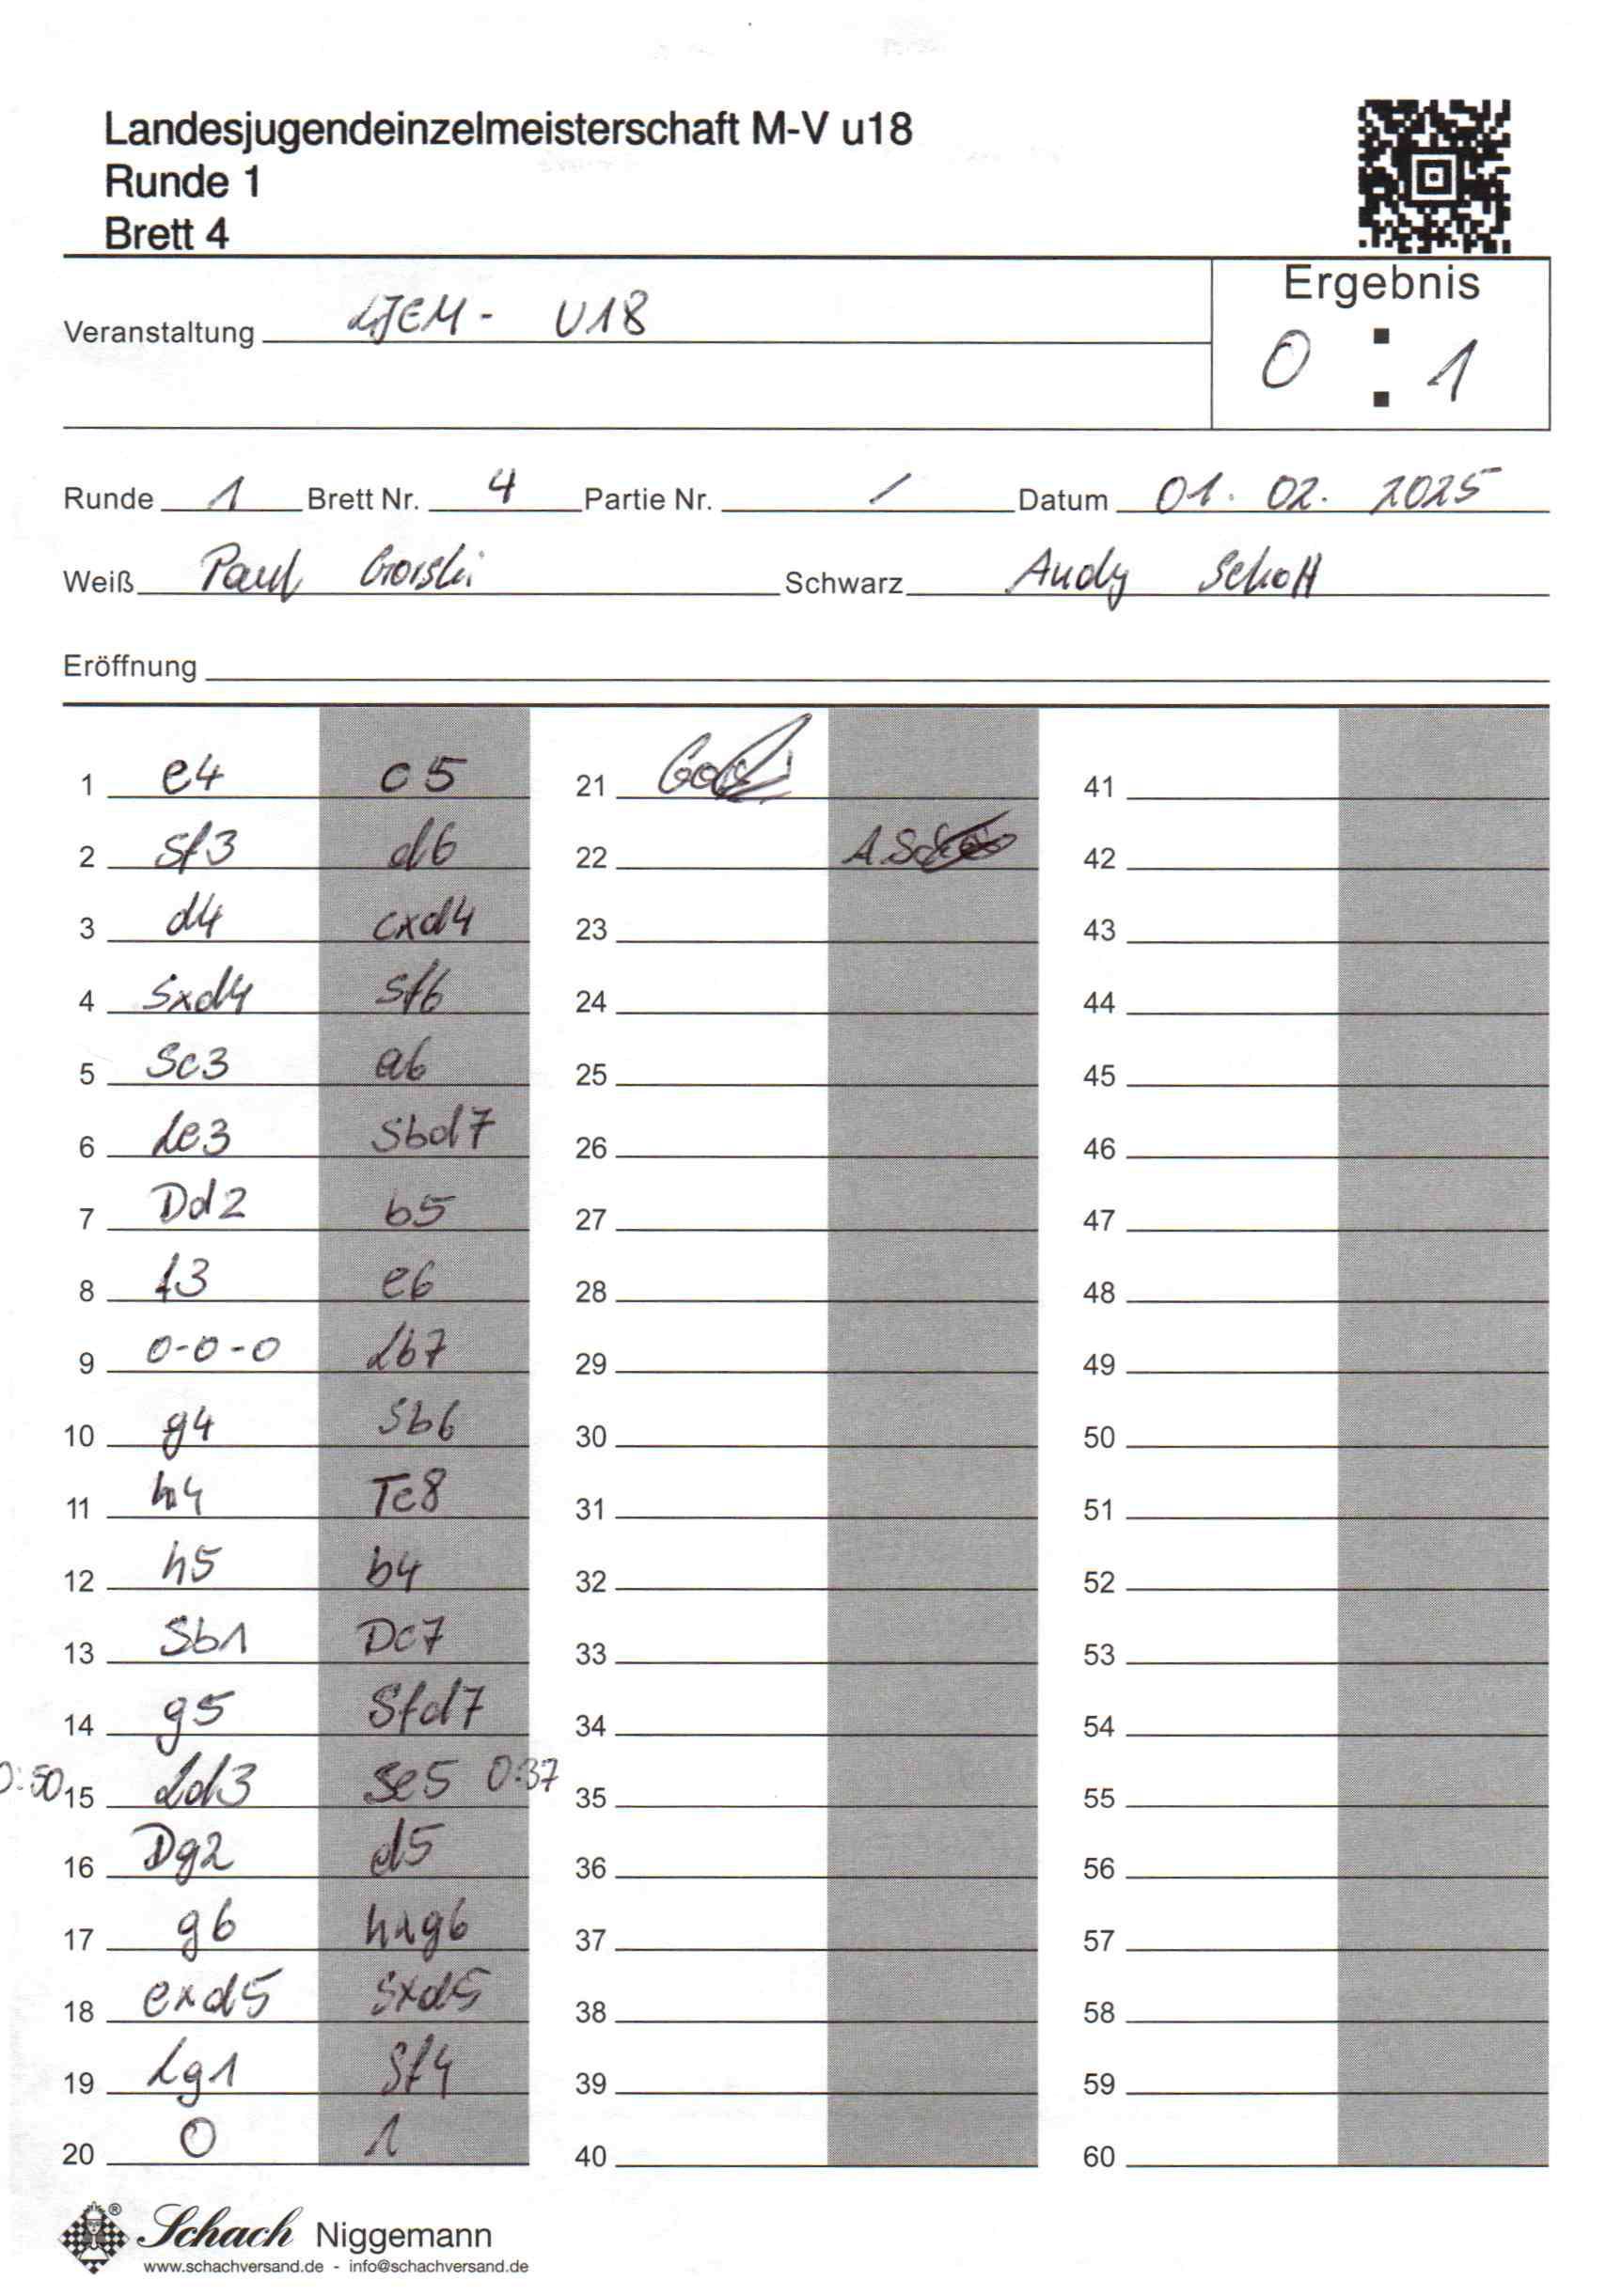 Landesjugendeinzelmeisterschaft M-V u18
Runde 1
Brett 4
Ergebnis
Veranstaltung LJEM - U18
0 : 1
Runde 1 Brett Nr. 4 Partie Nr. / Datum 01. 02. 2025
Weiß Paul Gorski Schwarz Andy Schott
Eröffnung
1 e4 c5 21 41
2 Sf3 d6 22 42
3 d4 cxd4 23 43
4 Sxd4 Sf6 24 44
5 Sc3 a6 25 45
6 Le3 Sbd7 26 46
7 Dd2 b5 27 47
8 f3 e6 28 48
9 0-0-0 Lb7 29 49
10 g4 Sb6 30 50
11 h4 Tc8 31 51
12 h5 b4 32 52
13 Sb1 Dc7 33 53
14 g5 Sfd7 34 54
0:50 15 Ld3 Se5 0:37 35 55
16 Dg2 d5 36 56
17 g6 hxg6 37 57
18 exd5 Sxd5 38 58
19 Lg1 Sf4 39 59
20 0 1 40 60
Schach Niggemann
www.schachversand.de - info@schachversand.de